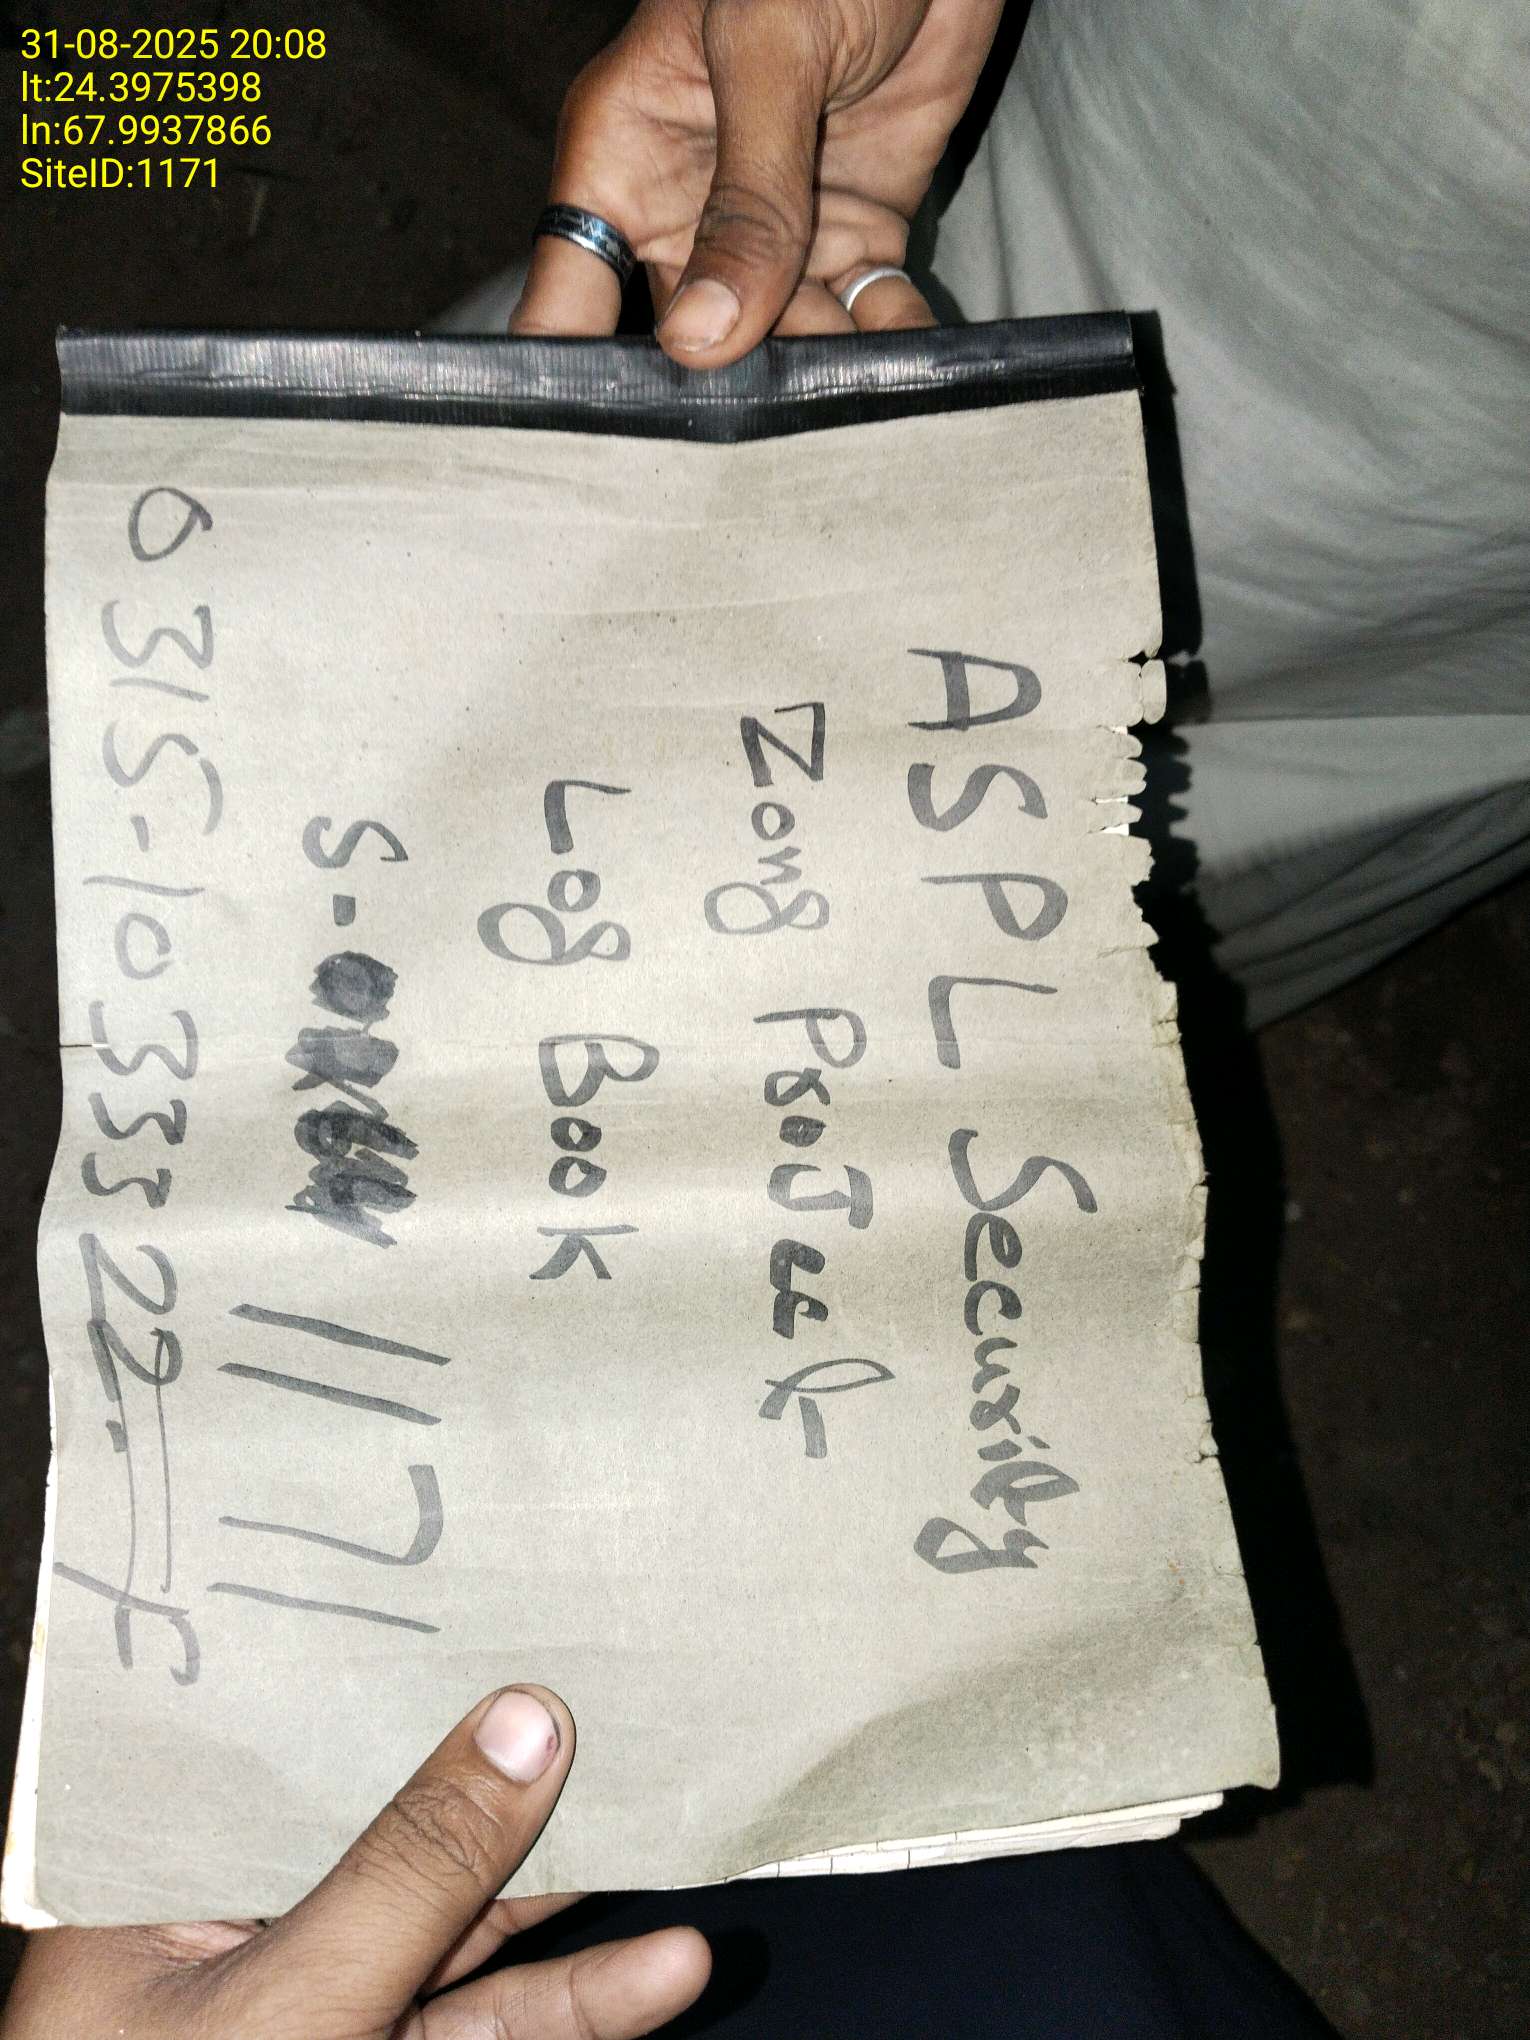 31-08-2025 20:08
lt:24.3975398
ln:67.9937866
SiteID:1171
ASPL Security
Zong ProJect
Log Book
S- 1171
0315-1033522